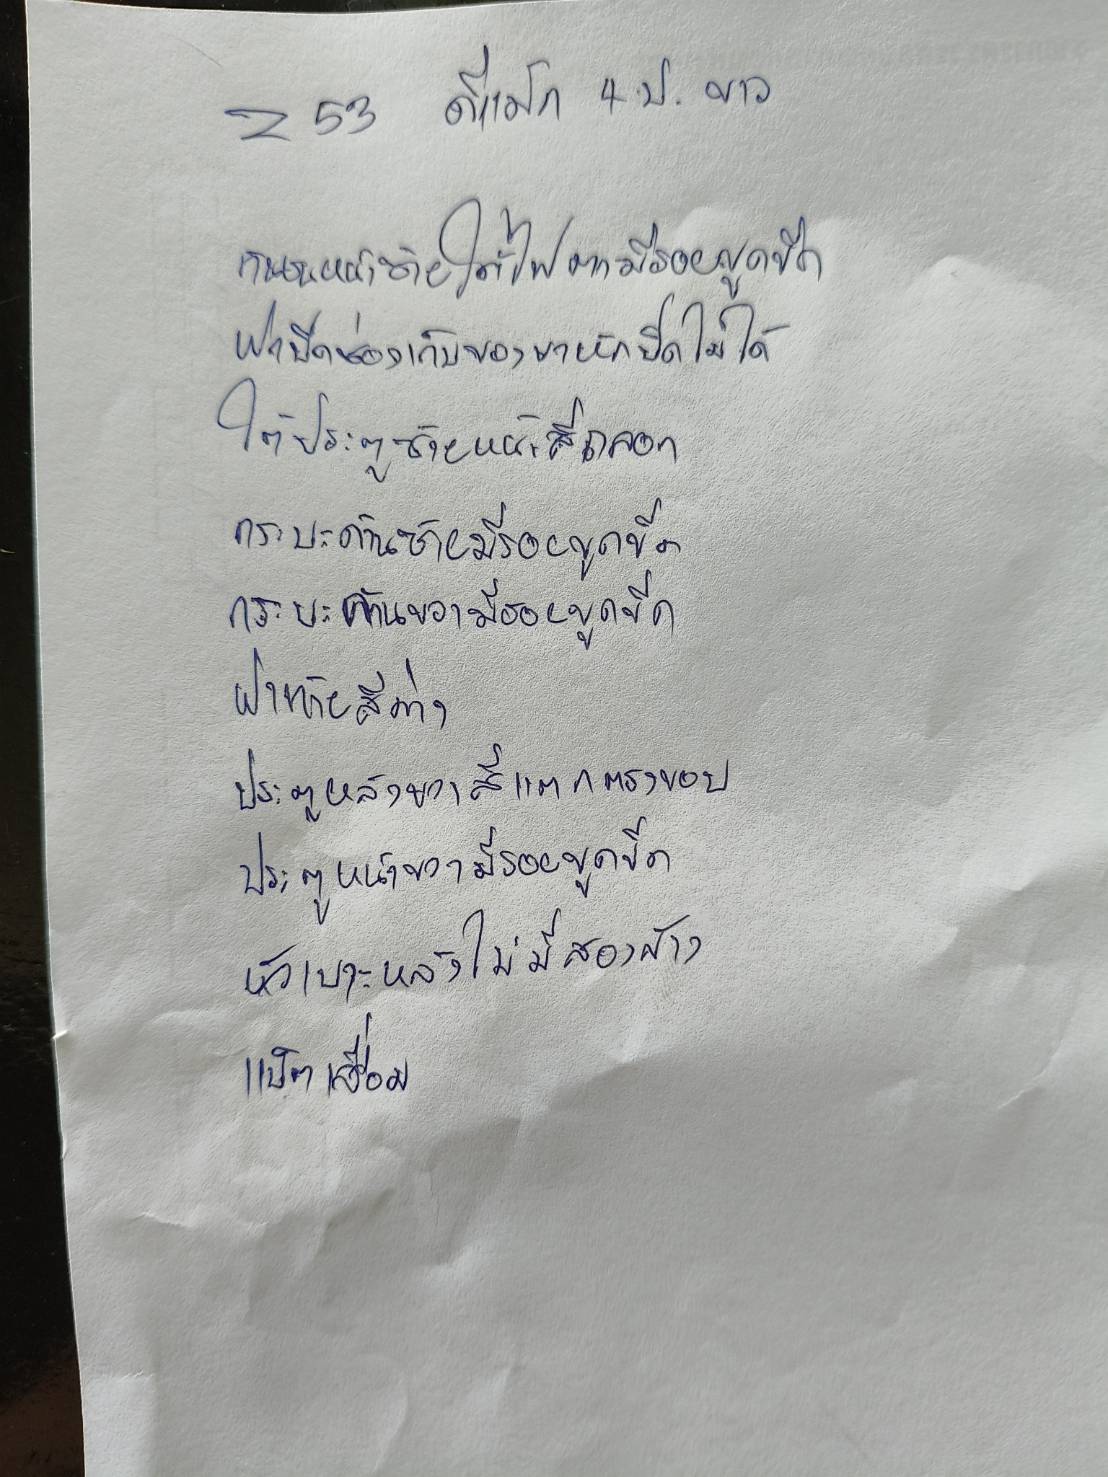 253 ดีแม็ก 4 ป. ขาว
กันชนหน้าซ้ายใต้ไฟตามีรอยขูดขีด
ฝาปิดช่องเก็บของขาหักปิดไม่ได้
ใต้ประตูซ้ายหน้าสีถลอก
กระบะด้านซ้ายมีรอยขูดขีด
กระบะด้านขวามีรอยขูดขีด
ฝาท้ายสีด่าง
ประตูหลังขวาสีแตกตรงขอบ
ประตูหน้าขวามีรอยขูดขีด
หัวเบาะหลังไม่มีสองข้าง
แบ็ตเสื่อม